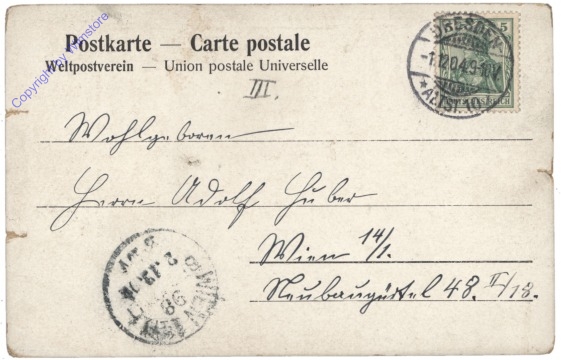 Postkarte — Carte postale
Weltpostverein — Union postale Universelle
III.
DRESDEN
5
-1.12.04.9-10V.
* ALTST. 10
REICH
Wohlgeboren
Herrn Adolf Huber
Wien 14/1.
Neubaugürtel 48. II/18.
WIEN
Copyright by